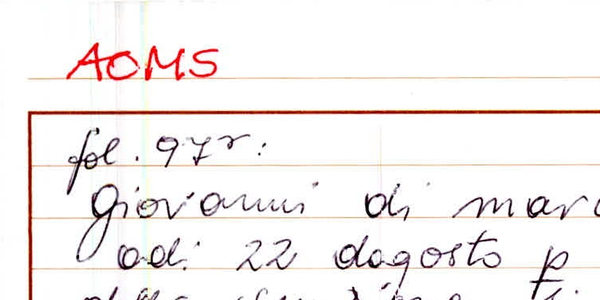 AOMS
fol. 97r:
Giovanni di marc
adi 22 dagosto p